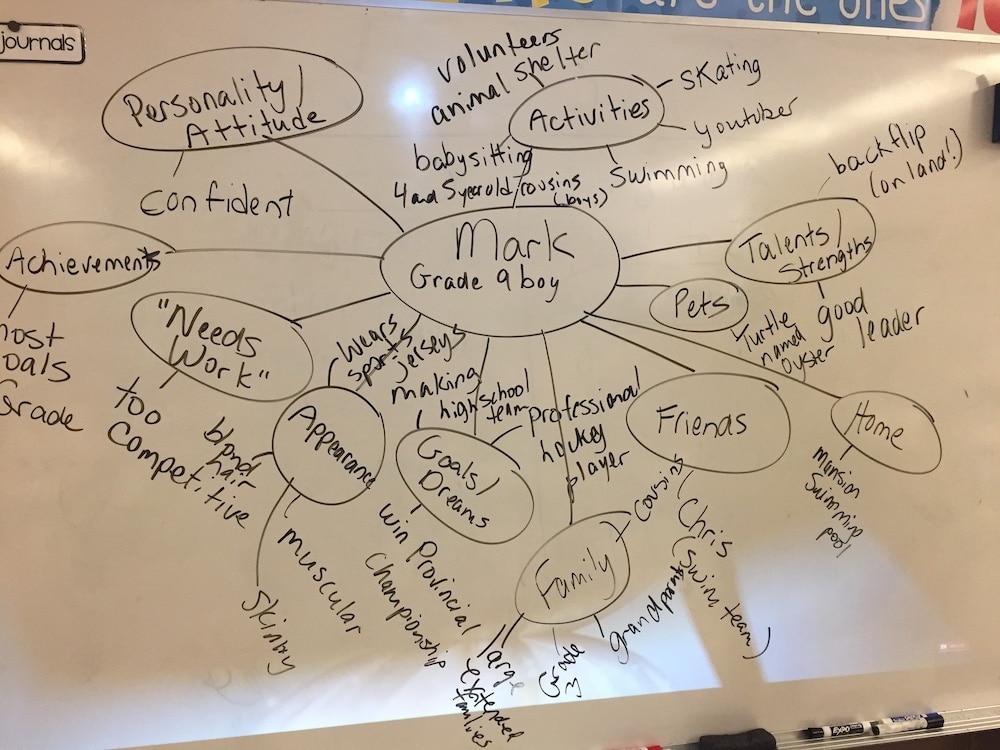 journals
are the ones
Personality/
Attitude
confident
volunteers
animal shelter
Activities
skating
youtuber
swimming
babysitting
4 and 5 year old cousins
(boys)
backflip
(on land!)
Talents/
Strengths
good
leader
Mark
Grade 9 boy
Achievements
most
goals
Grade
"Needs
Work"
too
competitive
Pets
Turtle
named
oyster
wears
sports
jerseys
Appearance
blond
hair
muscular
skinny
making
high school
team
professional
hockey
player
Goals/
Dreams
win Provincial
championship
Friends
Chris
(swim team)
Home
mansion
swimming
pool
Family
cousins
grandparents
Grade
3
large
extended
families
EXPO
EXPO